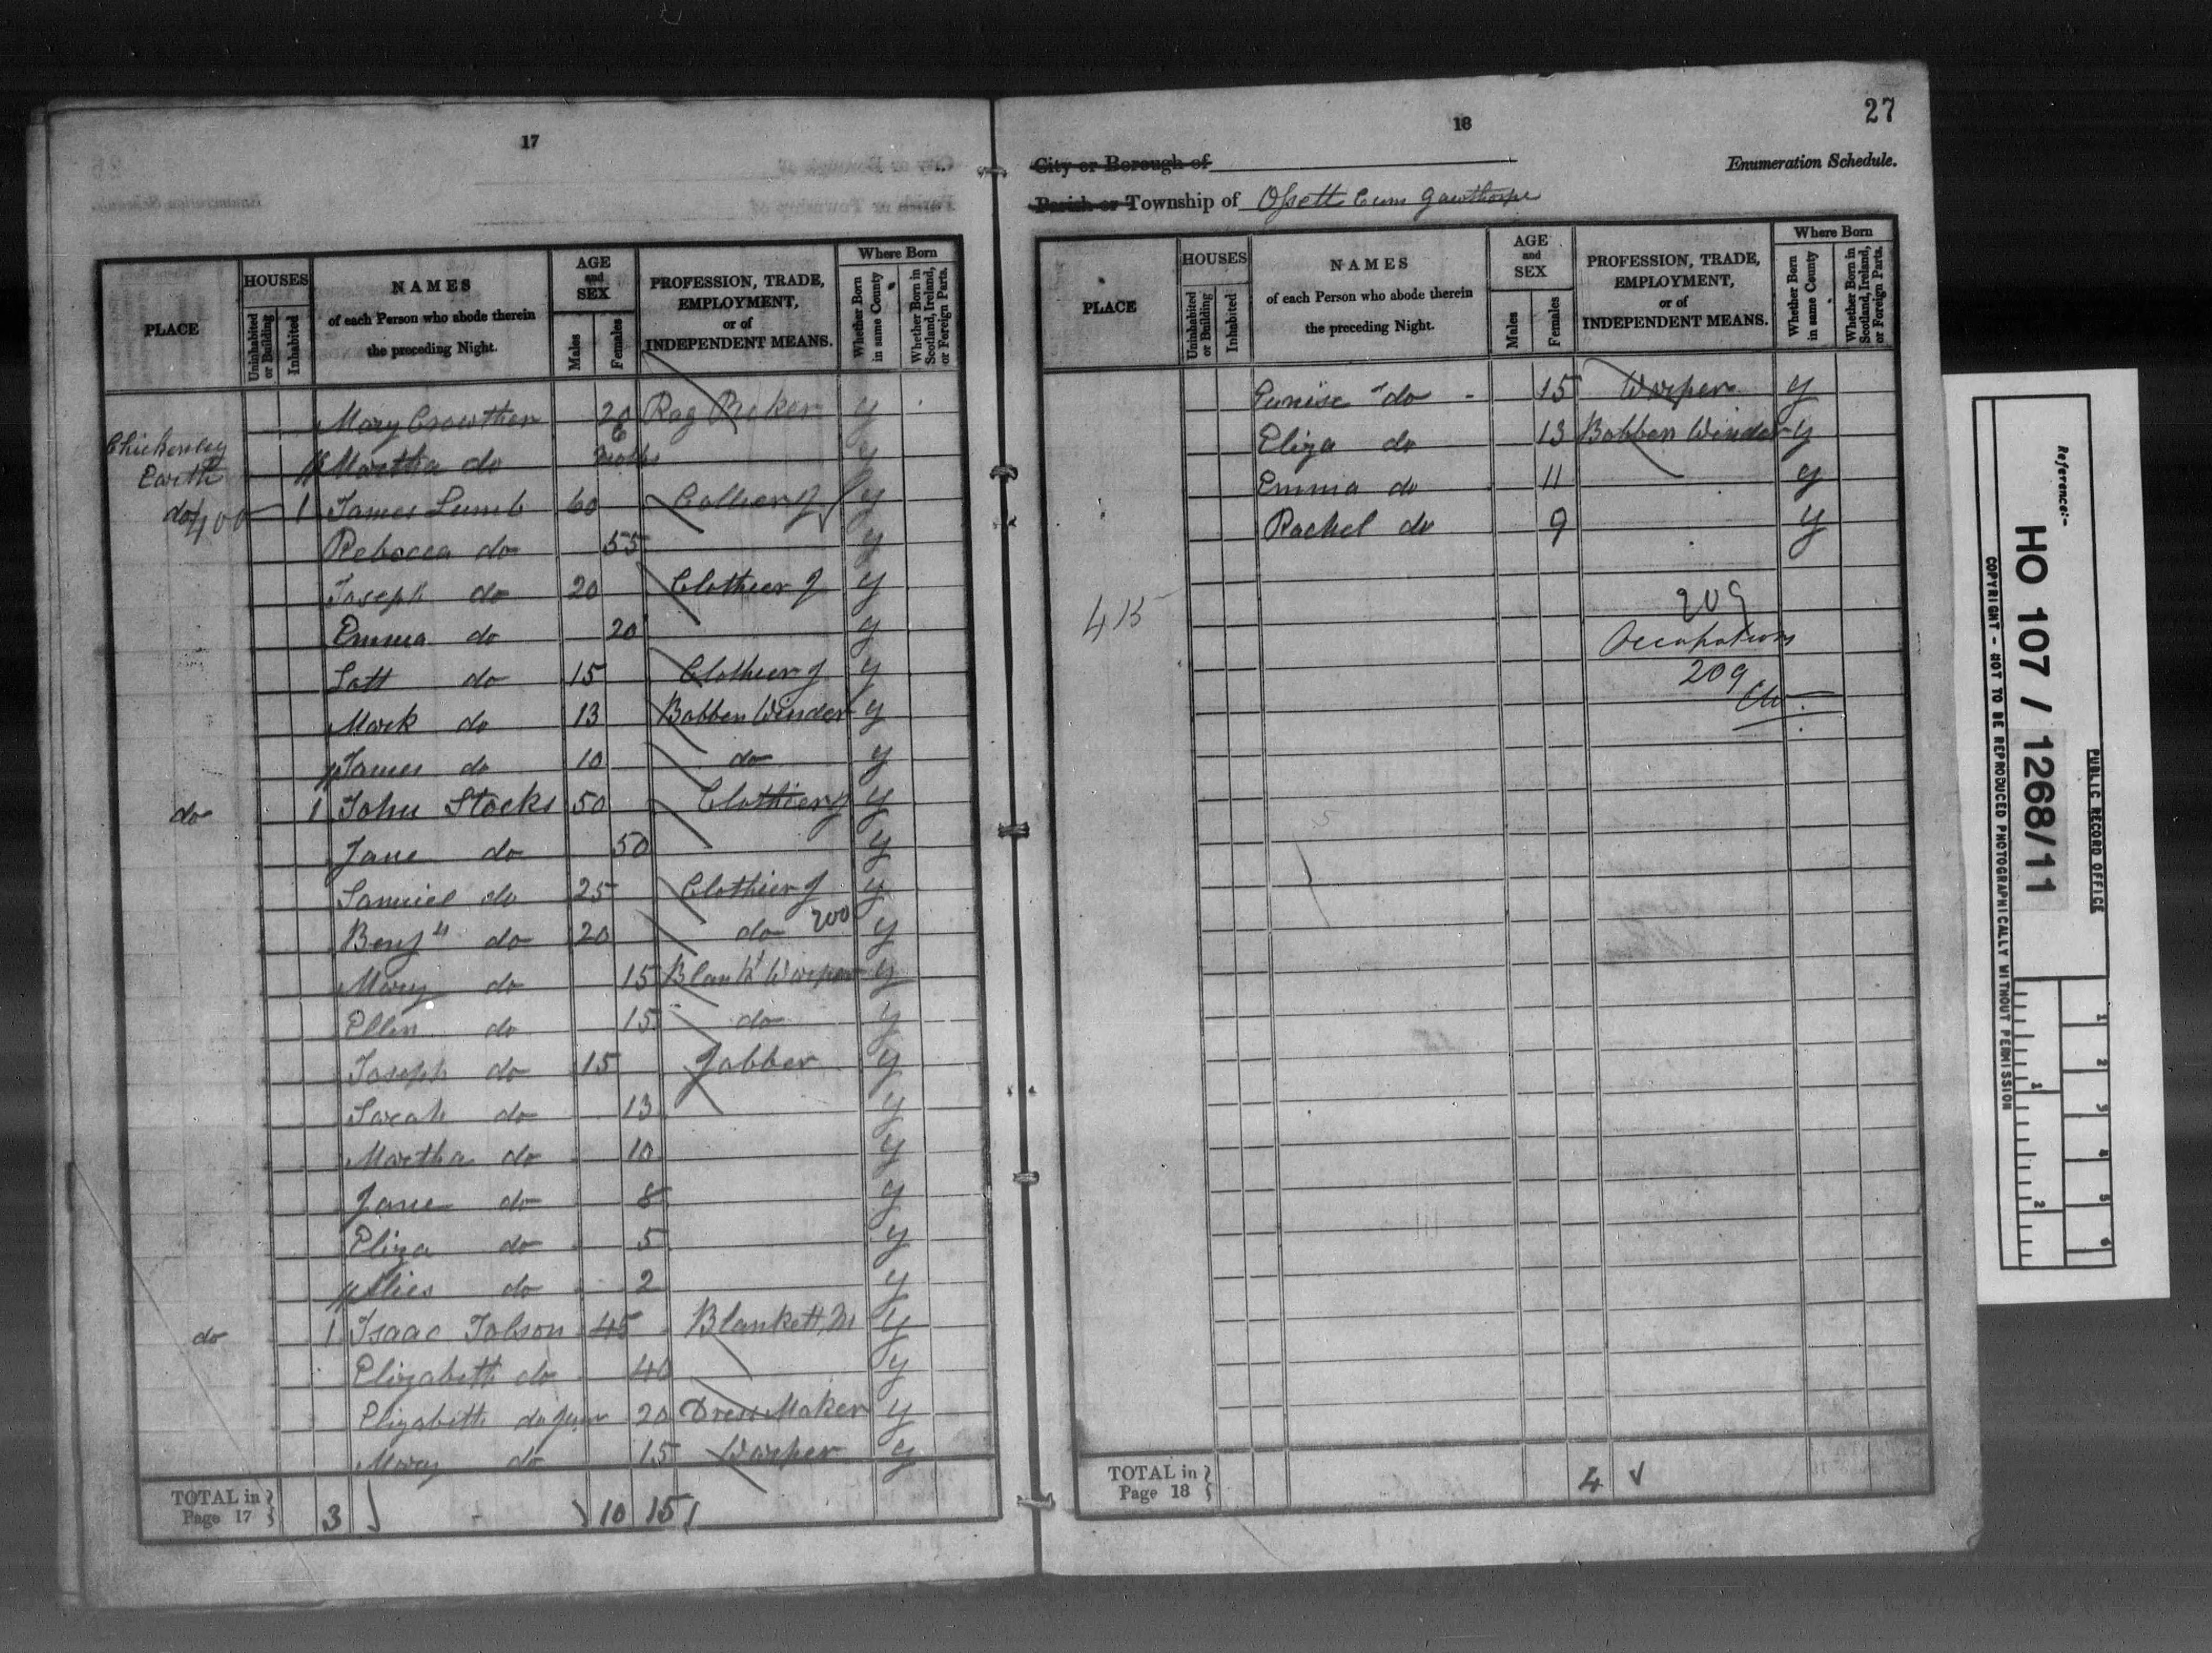 17
PLACE
HOUSES
Uninhabited or Building
Inhabited
NAMES
of each Person who abode therein
the preceding Night.
AGE
and
SEX
Males
Females
PROFESSION, TRADE,
EMPLOYMENT,
or of
INDEPENDENT MEANS.
Where Born
Whether Born in same County
Whether Born in Scotland, Ireland, or Foreign Parts.
Mary Crowther 20 Rag Picker y
Chickenley
Earth Martha do 6 Moths y
do 400 1 James Lumb 60 Collier J y
Rebecca do 55 y
Joseph do 20 Clothier J y
Emma do 20 y
Latt do 15 Clothier J y
Mark do 13 Bobben Winder y
James do 10 do y
do 1 John Stocks 50 Clothier J y
Jane do 50 y
Samuel do 25 Clothier J y
Benjn do 20 do 200 y
Mary do 15 Blankt Warper y
Ellen do 15 do y
Joseph do 15 Jobber y
Sarah do 13 y
Martha do 10 y
Jane do 8 y
Eliza do 5 y
Alies do 2 y
do 1 Isaac Jobson 45 Blankett M y
Elizabeth do 40 y
Elizabeth do Junr 20 Dress Maker y
Mary do 15 Warper y
TOTAL in Page 17 3 10 15
18
27
City or Borough of
Enumeration Schedule.
Parish or Township of Ossett Cum Gawthorpe
PLACE
HOUSES
Uninhabited or Building
Inhabited
NAMES
of each Person who abode therein
the preceding Night.
AGE
and
SEX
Males
Females
PROFESSION, TRADE,
EMPLOYMENT,
or of
INDEPENDENT MEANS.
Where Born
Whether Born in same County
Whether Born in Scotland, Ireland, or Foreign Parts.
Eunise do 15 Warper y
Eliza do 13 Bobben Winder y
Emma do 11 y
Rachel do 9 y
415
209
Occupations
209
TOTAL in Page 18 4
Reference:-
HO 107 / 1268/11
PUBLIC RECORD OFFICE
COPYRIGHT - NOT TO BE REPRODUCED PHOTOGRAPHICALLY WITHOUT PERMISSION
1
2
3
4
5
6
1
2